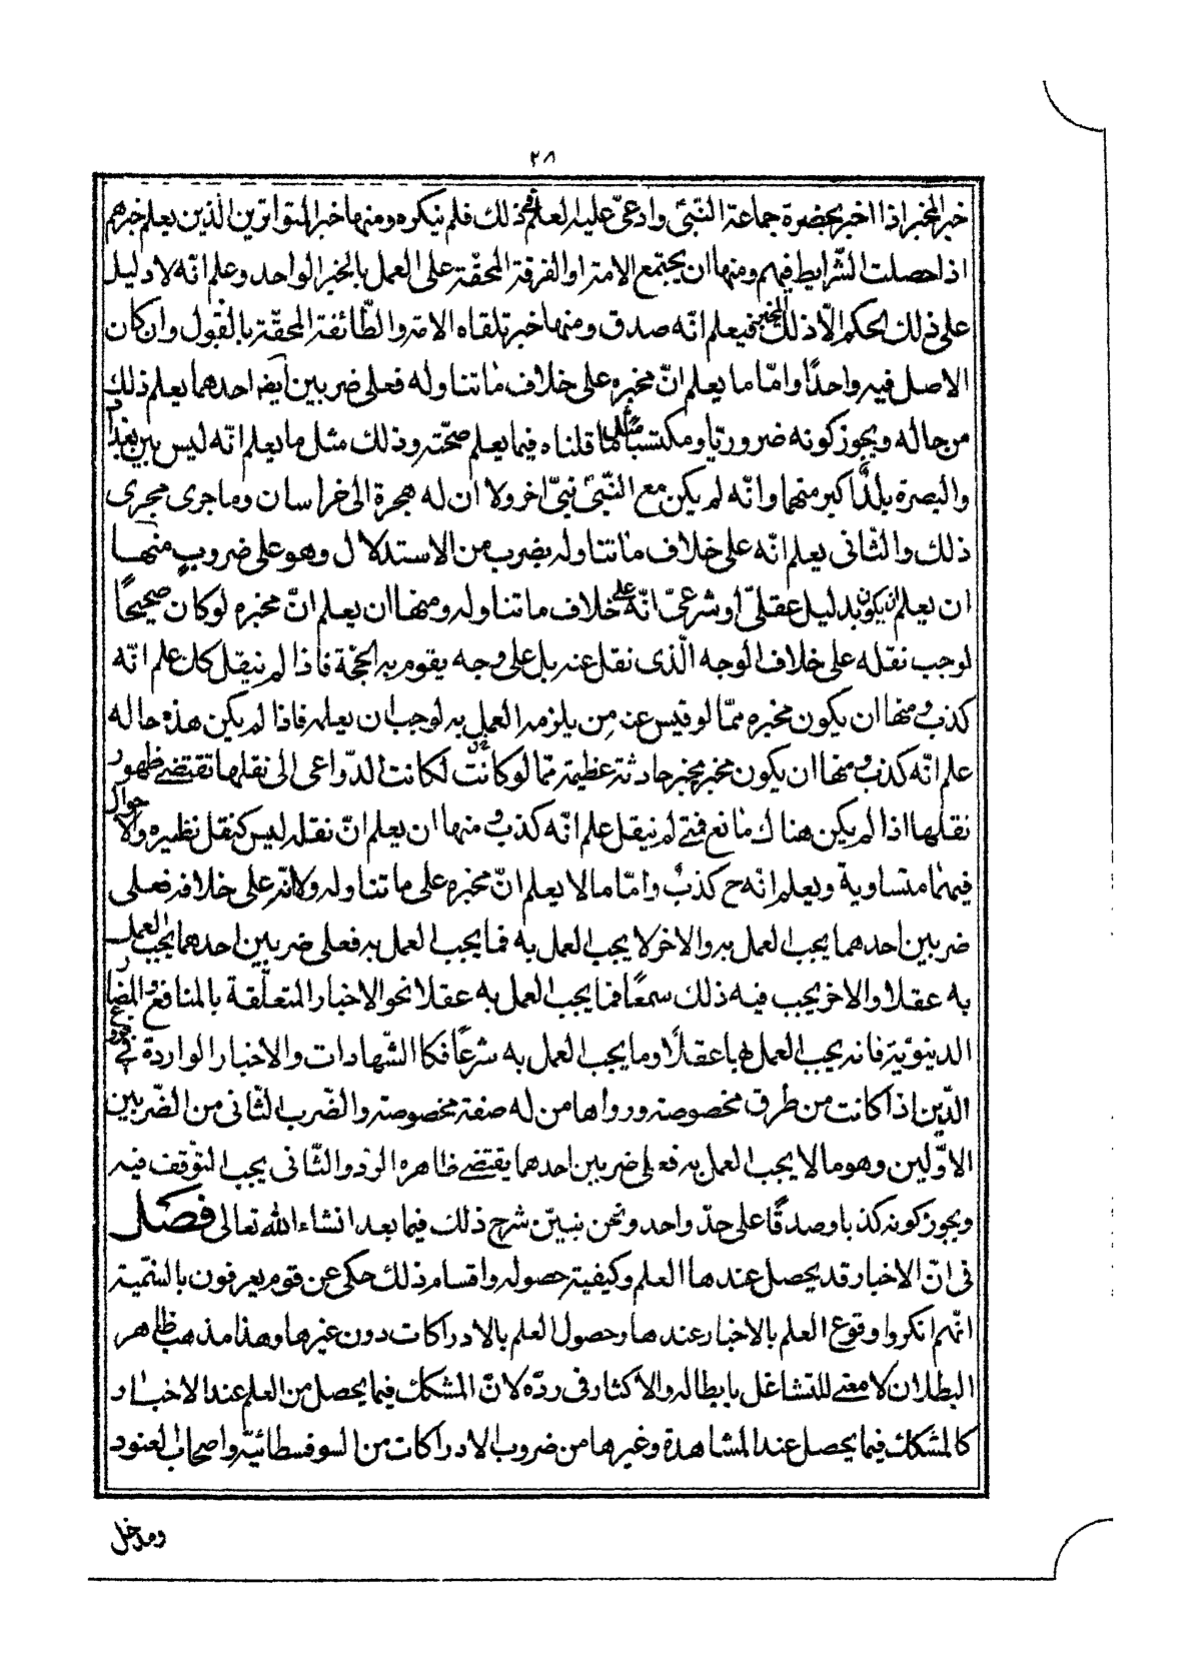 ٢٨
خبر المخبر اذا اخبر بحضرة جماعة النّبیّ وادعیّ علیه العلم فی ذلك فلم ینكروه ومنها خبر المتواترین الّذین یعلم خبرهم
اذا حصلت الشّرایط فیهم ومنها ان یجتمع الامة او الفرقة المحقّة علی العمل بالخبر الواحد وعلم انّه لا دلیل
علی ذلك الحكم الّا ذلك الخبر فیعلم انّه صدق ومنها خبر تلقاه الامة والطّائفة المحقّة بالقبول وان كان
الاصل فیه واحدًا وامّا ما یعلم انّ مخبره علی خلاف ما تناوله فعلی ضربین ایضا احدهما یعلم ذلك
من حاله ویجوز كونه ضروریّا ومكتسبًا مثل ما قلناه فیما یعلم صحّته وذلك مثل ما یعلم انّه لیس بین بغداد
والبصرة بلدًا اكبر منهما وانّه لم یكن مع النّبیّ نبیّ اخر ولا ان له هجرة الی خراسان وما جری مجری
ذلك والثّانی یعلم انّه علی خلاف ما تناوله بضرب من الاستدلال وهو علی ضروب منها
ان یعلم ان یكون بدلیل عقلیّ او شرعیّ انّه علی خلاف ما تناوله ومنها ان یعلم انّ مخبره لو كان صحیحًا
لوجب نقله علی خلاف الوجه الّذی نقل عنه بل علی وجه یقوم به الحجّة فاذا لم ینقل كان علم انّه
كذب ومنها ان یكون مخبره ممّا لو فتیس عنه من یلزمه العمل به لوجب ان یعلمه فاذا لم یكن هذه حاله
علم انّه كذب ومنها ان یكون مخبر مخبر حادثة عظیمة ممّا لو كانت لكانت الدّواعی الی نقلها تقتضی ظهور
نقلها اذا لم یكن هناك مانع فمتی لم ینقل علم انّه كذب ومنها ان یعلم انّ نقله لیس كنقل نظیره والاحوال
فیهما متساویة ویعلم انّه ح كذب وامّا ما لا یعلم انّ مخبره علی ما تناوله ولا انّه علی خلافه فعلی
ضربین احدهما یجب العمل به والاخر لا یجب العمل به فما یجب العمل به فعلی ضربین احدهما یجب العمل
به عقلا والاخر یجب فیه ذلك سمعًا فما یجب العمل به عقلا نحو الاخبار المتعلّقة بالمنافع والمضار
الدینویّة فانه یجب العمل بها عقلًا وما یجب العمل به شرعًا فكا الشّهادات والاخبار الواردة فی فروع
الدّین اذا كانت من طرق مخصوصة ورواها من له صفة مخصوصة والضّرب الثّانی من الضّربین
الاوّلین وهو ما لا یجب العمل به فعلی ضربین احدهما یقتضی ظاهره الرّد والثّانی یجب التوّقف فیه
ویجوز كونه كذبا وصدقًا علی حدّ واحد ونحن نبیّن شرح ذلك فیما بعد انشاء الله تعالی فصل
فی انّ الاخبار قد یحصل عندها العلم وكیفیة حصوله واقسام ذلك حكی عن قوم یعرفون بالسّمنیّة
انّهم انكروا وقوع العلم بالاخبار عندها وحصول العلم بالادراكات دون غیرها وهذا مذهب ظاهر
البطلان لا معنی للتشاغل بابطاله والاكثار فی ردّه لانّ المشكك فیما یحصل من العلم عند الاخبار
كالمشكك فیما یحصل عند المشاهدة وغیرها من ضروب الادراكات من السوفسطائیّة واصحاب العنود
ومدخل